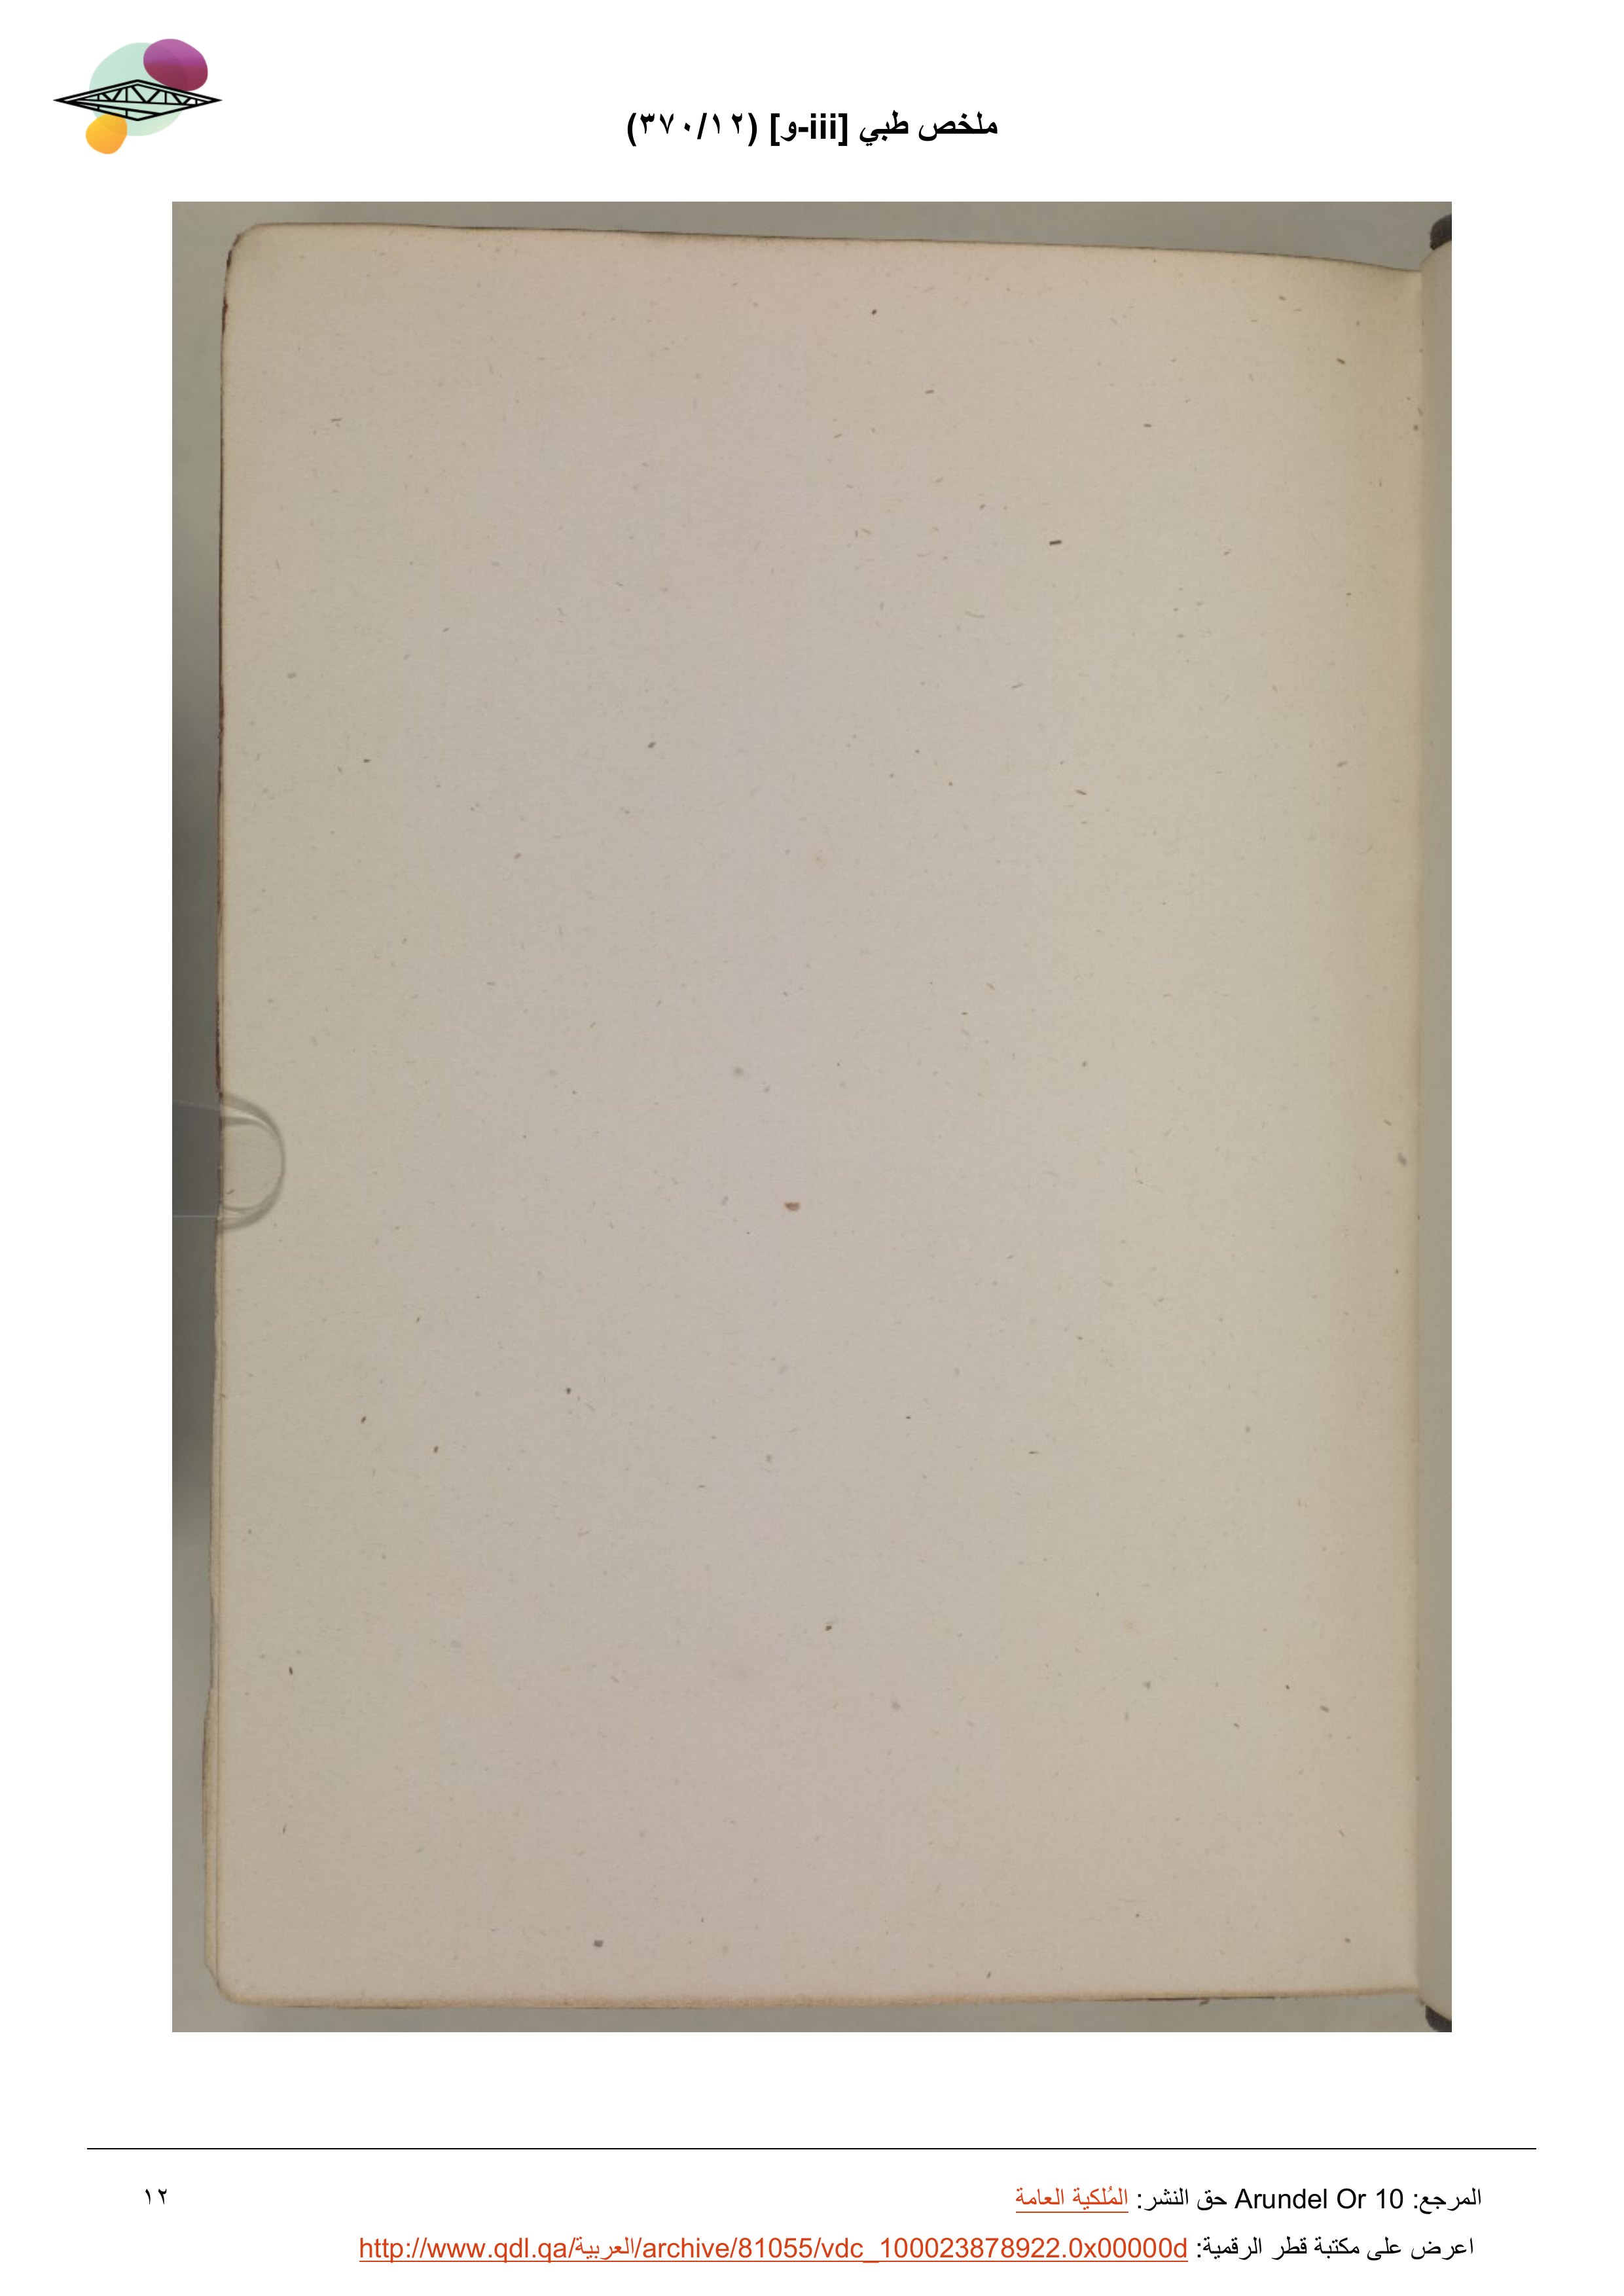 ملخص طبي [iii-و] (٣٧٠/١٢)
المرجع: Arundel Or 10 حق النشر: المُلكية العامة
١٢
اعرض على مكتبة قطر الرقمية: http://www.qdl.qa/العربية/archive/81055/vdc_100023878922.0x00000d